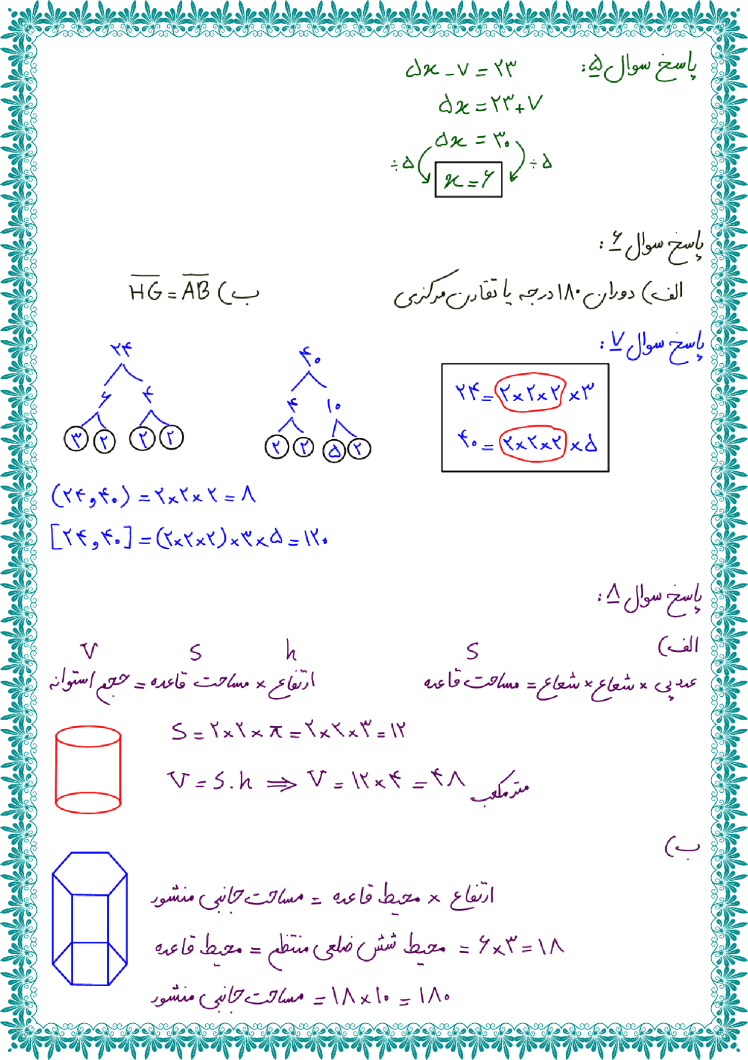 پاسخ سوال ۵:
۵x - ۷ = ۲۳
۵x = ۲۳ + ۷
۵x = ۳۰
÷۵ x = ۶ ÷۵
پاسخ سوال ۶:
الف) دوران ۱۸۰ درجه یا تقارن مرکزی ب) HG = AB
پاسخ سوال ۷:
۲۴ = ۲×۲×۲ ×۳
۴۰ = ۲×۲×۲ ×۵
۲۴
۶ ۴
۳ ۲ ۲ ۲
۴۰
۴ ۱۰
۲ ۲ ۵ ۲
(۲۴ و ۴۰) = ۲×۲×۲ = ۸
[۲۴ و ۴۰] = (۲×۲×۲)×۳×۵ = ۱۲۰
پاسخ سوال ۸:
الف)
S
عدد پی × شعاع × شعاع = مساحت قاعده
V S h
ارتفاع × مساحت قاعده = حجم استوانه
S = ۲×۲×π = ۲×۲×۳ = ۱۲
V = S.h ⇒ V = ۱۲×۴ = ۴۸ متر مکعب
ب)
ارتفاع × محیط قاعده = مساحت جانبی منشور
محیط قاعده = محیط شش ضلعی منتظم = ۶×۳ = ۱۸
مساحت جانبی منشور = ۱۸×۱۰ = ۱۸۰